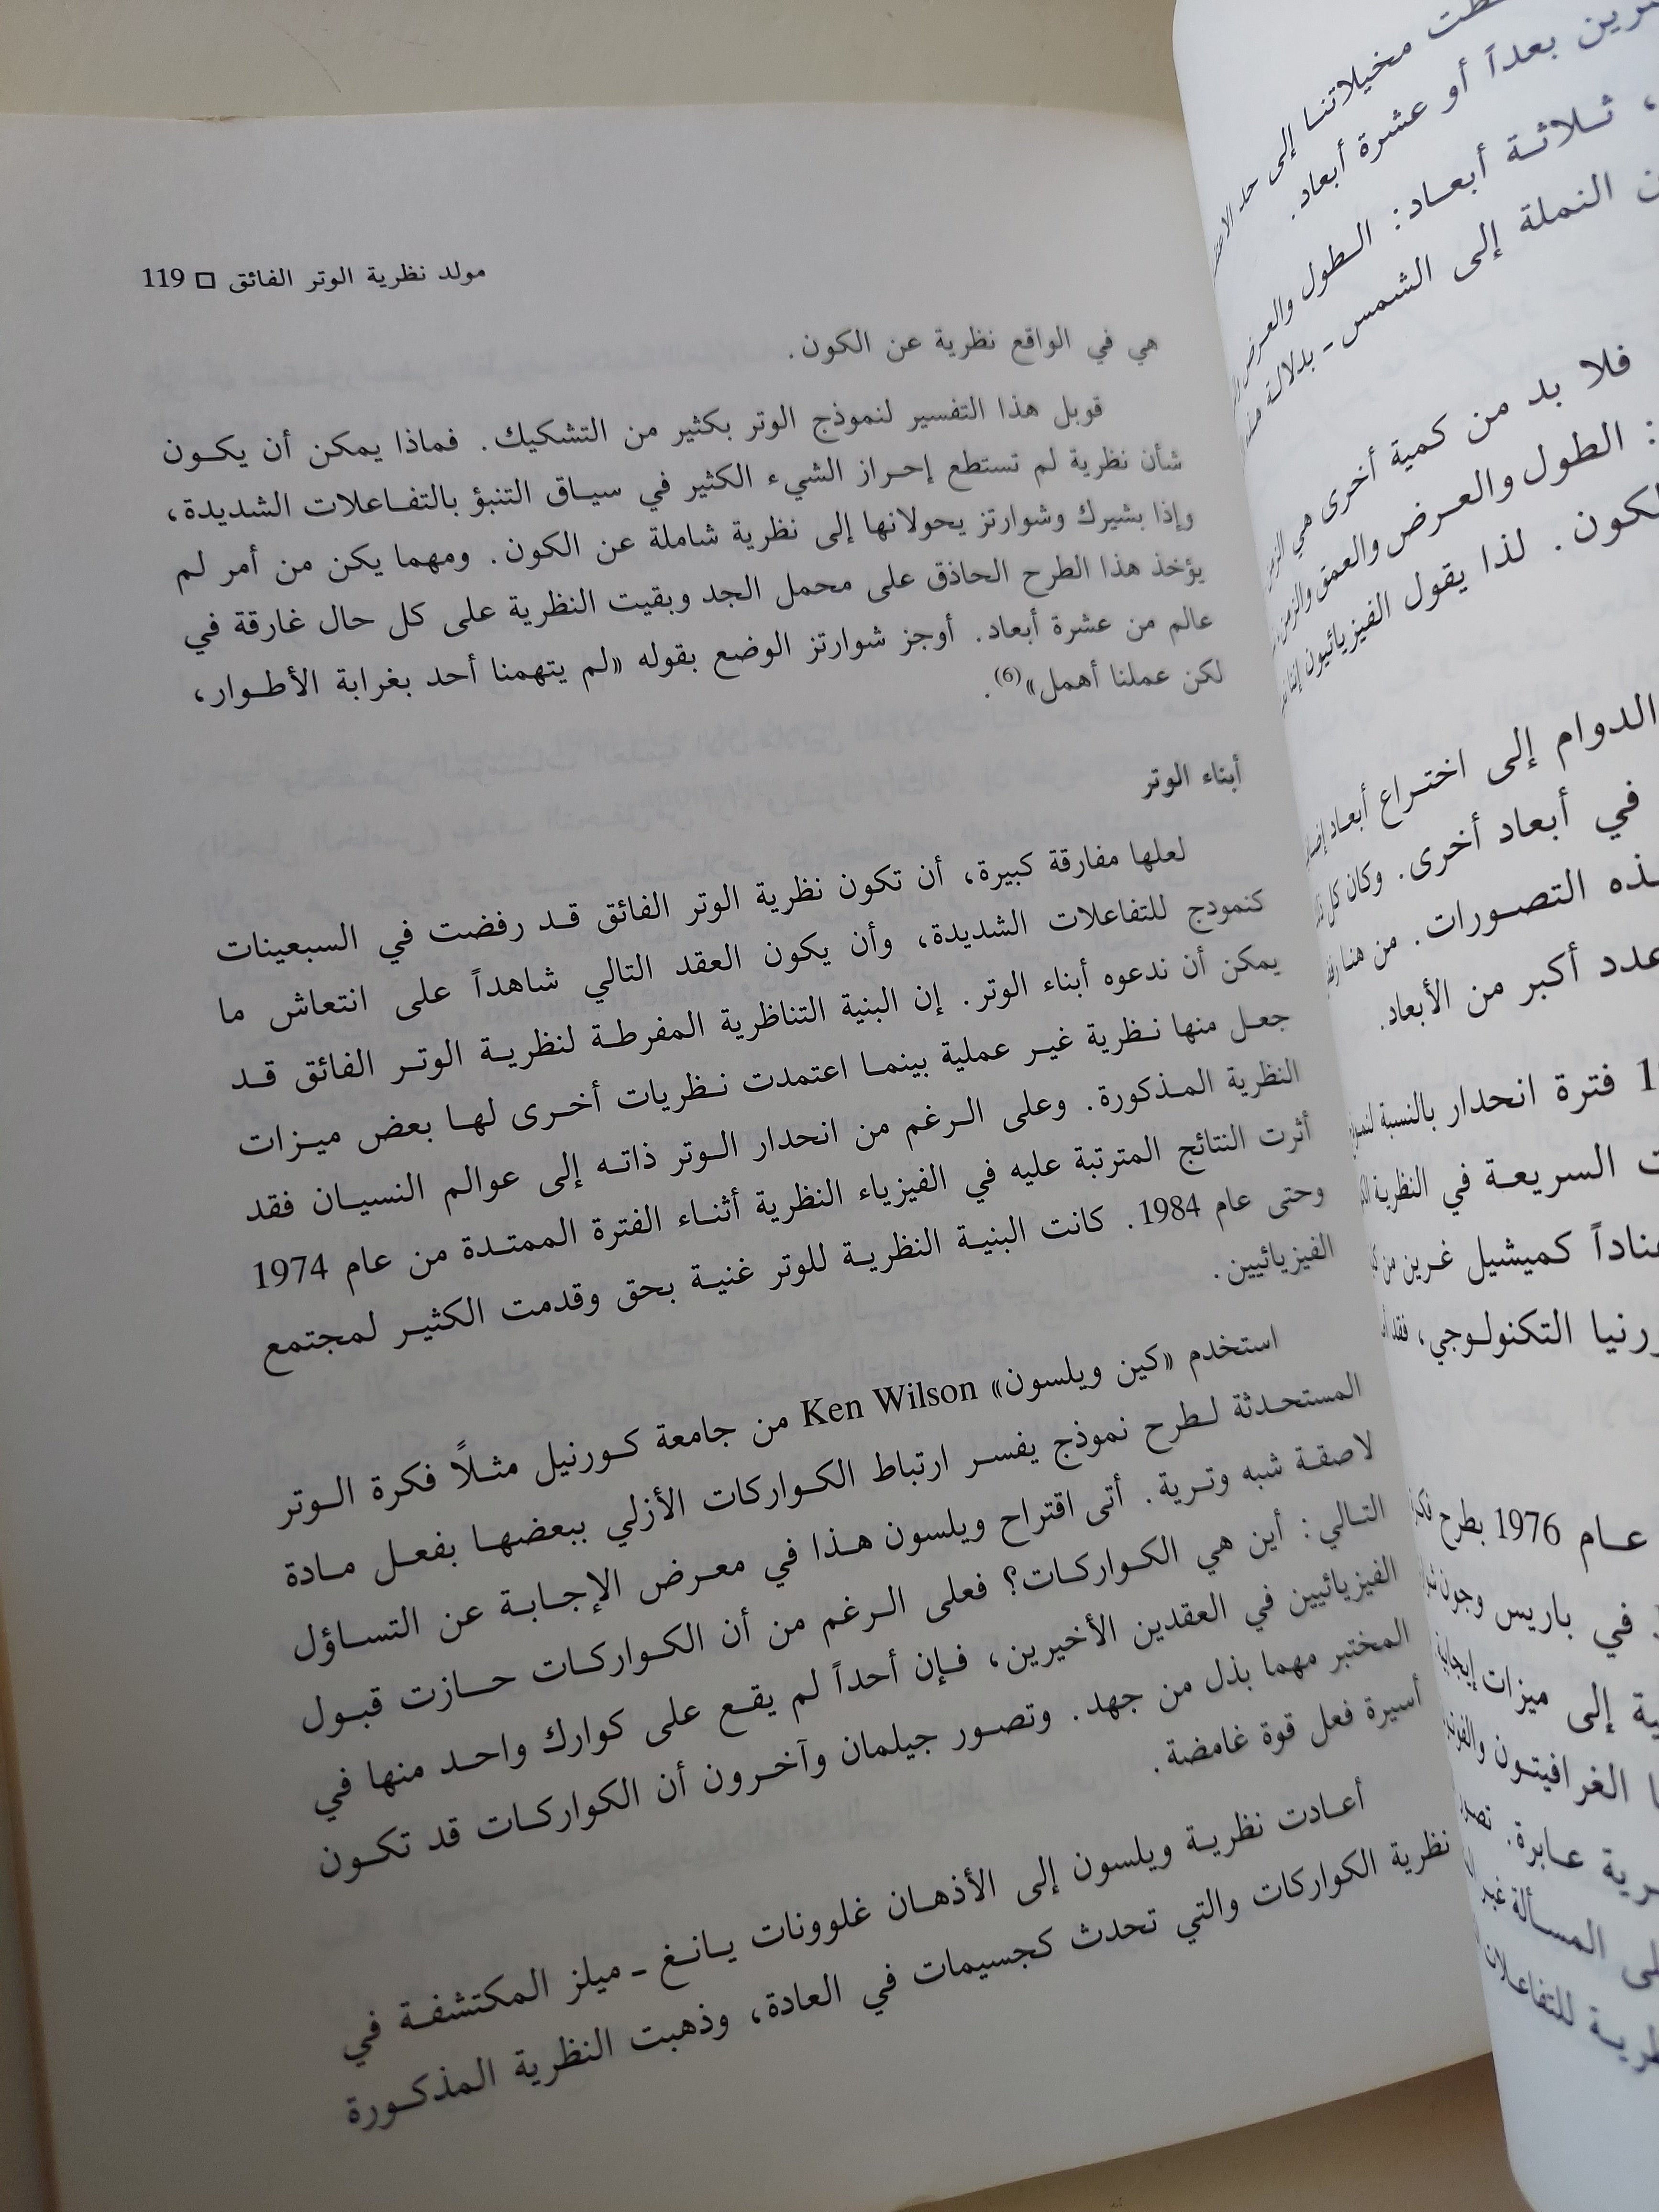 مولد نظرية الوتر الفائق □ 119
هي في الواقع نظرية عن الكون.
قوبل هذا التفسير لنموذج الوتر بكثير من التشكيك. فماذا يمكن أن يكـون
شأن نظرية لم تستطع إحـراز الشيء الكثير في سيـاق التنبؤ بالتفـاعلات الشديدة،
وإذا بشيرك وشوارتز يحولانها إلى نظرية شاملة عن الكون. ومهما يكن من أمر لم
يؤخذ هذا الطرح الحاذق على محمل الجد وبقيت النظرية على كل حال غارقة في
عالم من عشرة أبعاد. أوجز شوارتز الوضع بقوله «لم يتهمنا أحد بغرابة الأطـوار،
لكن عملنا أهمل»(6).
أبناء الوتر
لعلها مفارقة كبيرة، أن تكون نظرية الوتر الفائق قـد رفضت في السبعينات
كنموذج للتفاعلات الشديدة، وأن يكون العقد التالي شاهداً على انتعاش ما
يمكن أن ندعوه أبناء الوتر. إن البنية التناظرية المفرطـة لنظريـة الوتـر الفائق قـد
جعـل منها نـظرية غيـر عملية بينمـا اعتمدت نـظريات أخـرى لهـا بعض ميـزات
النظرية المـذكورة. وعلى الـرغم من انحدار الـوتر ذاتـه إلى عوالم النسيـان فقد
أثرت النتائج المترتبة عليه في الفيزياء النظرية أثنـاء الفترة الممتـدة من عام 1974
وحتى عام 1984. كانت البنيـة النظريـة للوتر غنيـة بحق وقدمت الكثيـر لمجتمع
الفيزيائيين.
استخدم «كين ويلسون» Ken Wilson من جامعة كـورنيل مثـلاً فكرة الـوتر
المستحـدثة لـطرح نموذج يفسـر ارتباط الكـواركات الأزلي ببعضهـا بفعـل مـادة
لاصقـة شبه وتـرية. أتى اقتراح ويلسون هـذا في معـرض الإجـابـة عن التسـاؤل
التـالي: أين هي الكـواركـات؟ فعلى الـرغم من أن الكـواركـات حـازت قبـول
الفيزيائيين في العقدين الأخيرين، فـإن أحداً لم يقـع على كوارك واحـد منها في
المختبر مهما بذل من جهد. وتصـور جيلمان وآخـرون أن الكواركـات قد تكـون
أسيرة فعل قوة غامضة.
أعـادت نظريـة ويلسون إلى الأذهـان غلوونات يـانـغ ـ ميلز المكتشفـة في
نظرية الكواركات والتي تحدث كجسيمات في العادة، وذهبت النظرية المذكـورة
مخيلاتنـا إلى حد
بعداً أو عشرة أبعاد.
، ثـلاثـة أبعـاد: الـطول والعـرض
النملة إلى الشمس ـ بدلالـة
فلا بد من كمية أخرى هي
: الطول والعـرض والعمق والزمن
لكون. لذا يقول الفيزيائيون
الدوام إلى اختـراع أبعـاد
في أبعاد أخرى. وكان كل
التصـورات. من هنـا
عدد أكبر من الأبعاد.
فترة انحدار بالنسبة
السريعـة في النظرية
كميشيل غـرين من
التكنولـوجي،
عـام 1976 بطرح
في باريس وجون
إلى ميزات إيجابية
الغرافيتـون
عـابرة.
المسـألة
للتفاعـلات